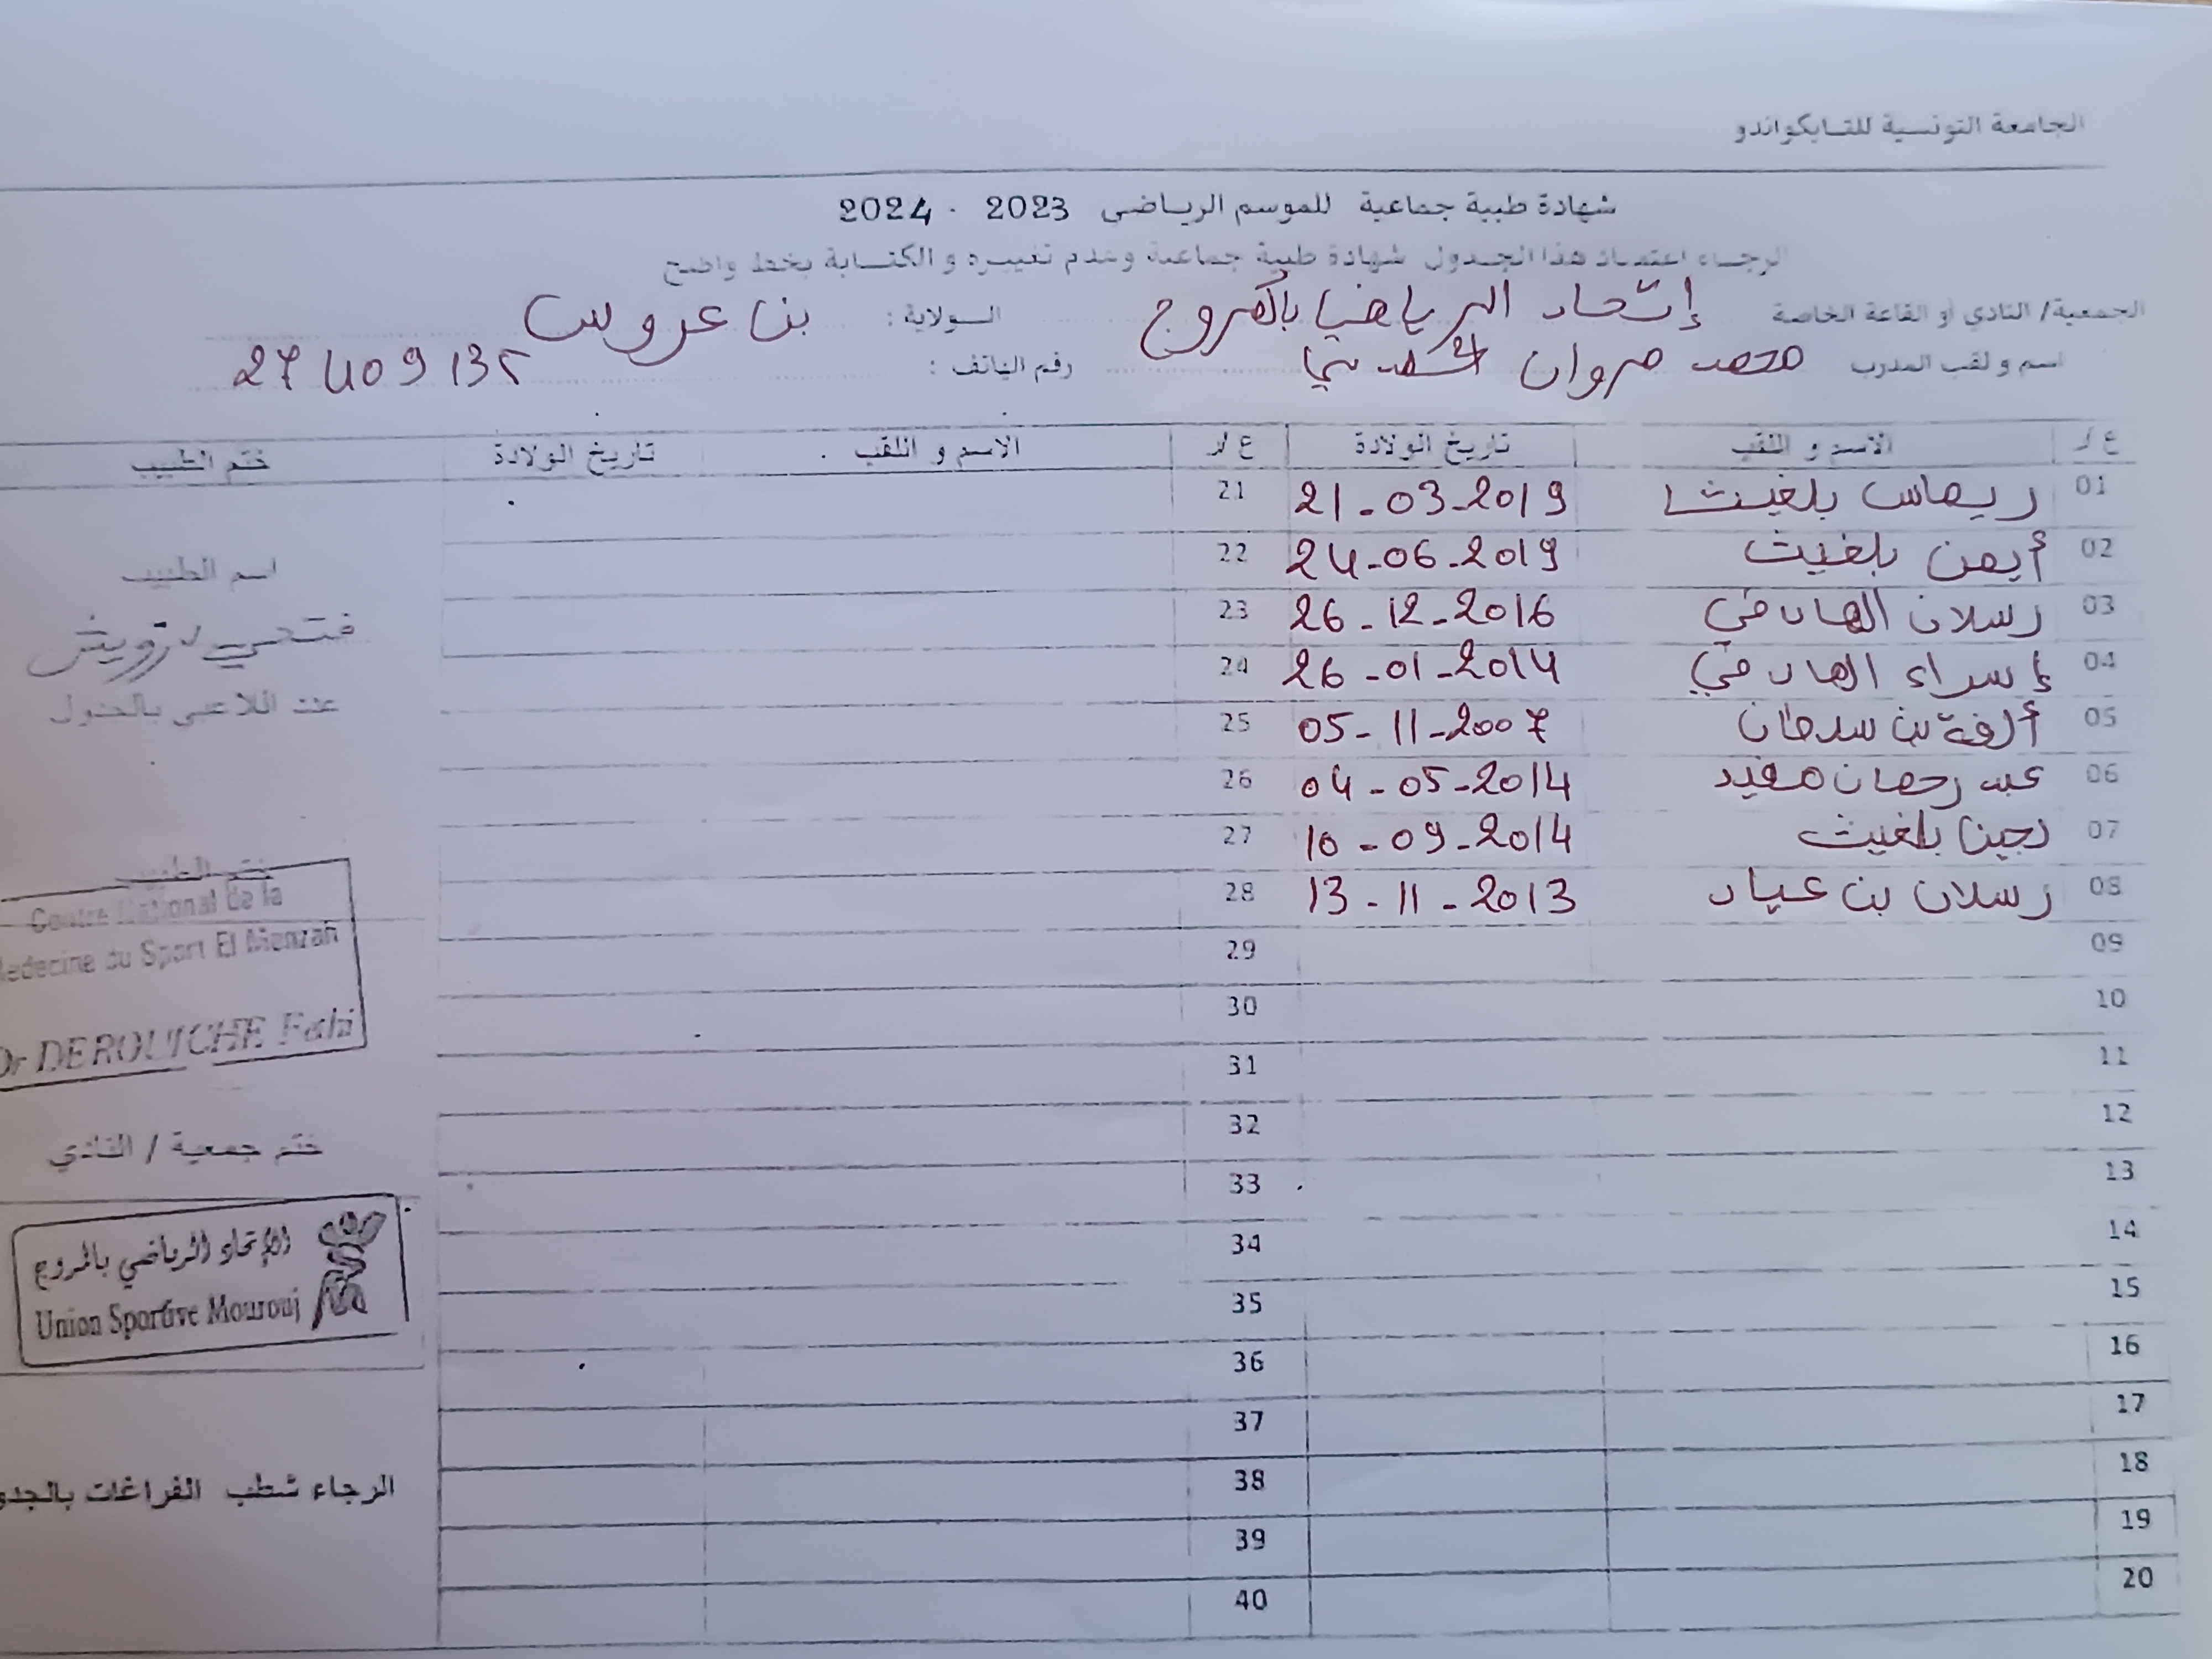 الجامعة التونسية للتايكواندو
شهادة طبية جماعية للموسم الرياضي 2023 - 2024
الرجاء اعتماد هذا الجدول شهادة طبية جماعية وعدم تغييره و الكتابة بخط واضح
الجمعية/ النادي أو القاعة الخاصة إتحاد الرياضي بالمروج الولاية : بن عروس
اسم و لقب المدرب محمد مروان رقم الهاتف : 27409135
ع/ر الاسم و اللقب تاريخ الولادة ع/ر الاسم و اللقب تاريخ الولادة ختم الطبيب
01 ريماس بلغيث 21-03-2019 21
02 أيمن بلغيث 24-06-2019 22
اسم الطبيب
03 رسلان الهادفي 26-12-2016 23
فتحي درويش
04 إسراء الهادفي 26-01-2014 24
05 ألفة بن سدحان 05-11-2007 25
06 عبد رحمان مفيد 04-05-2014 26
07 لجين بلغيث 10-09-2014 27
ختم الطبيب
08 رسلان بن عياد 13-11-2013 28
Centre National de la
Medecine du Sport El Menzah
09 29
10 30
Dr DEROUICHE Fathi
11 31
12 32
ختم جمعية / النادي
13 33
14 34
الإتحاد الرياضي بالمروج
15 35
Union Sportive Mourouj
16 36
17 37
18 38
الرجاء شطب الفراغات بالجدو
19 39
20 40